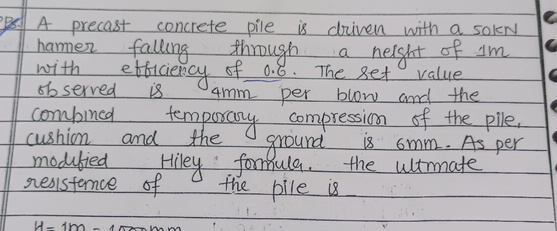 A precast concrete pile is driven with a 50KN
hamer falling through a height of 1m
with efficiency of 0.6. The set value
observed is 4mm per blow and the
combined temporary compression of the pile,
cushion and the ground is 6mm. As per
modified Hiley formula. the ultmate
resistence of the pile is
H = 1m = 1000mm